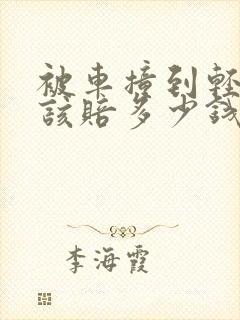 被車撞到輕
該賠多少錢
李海霞